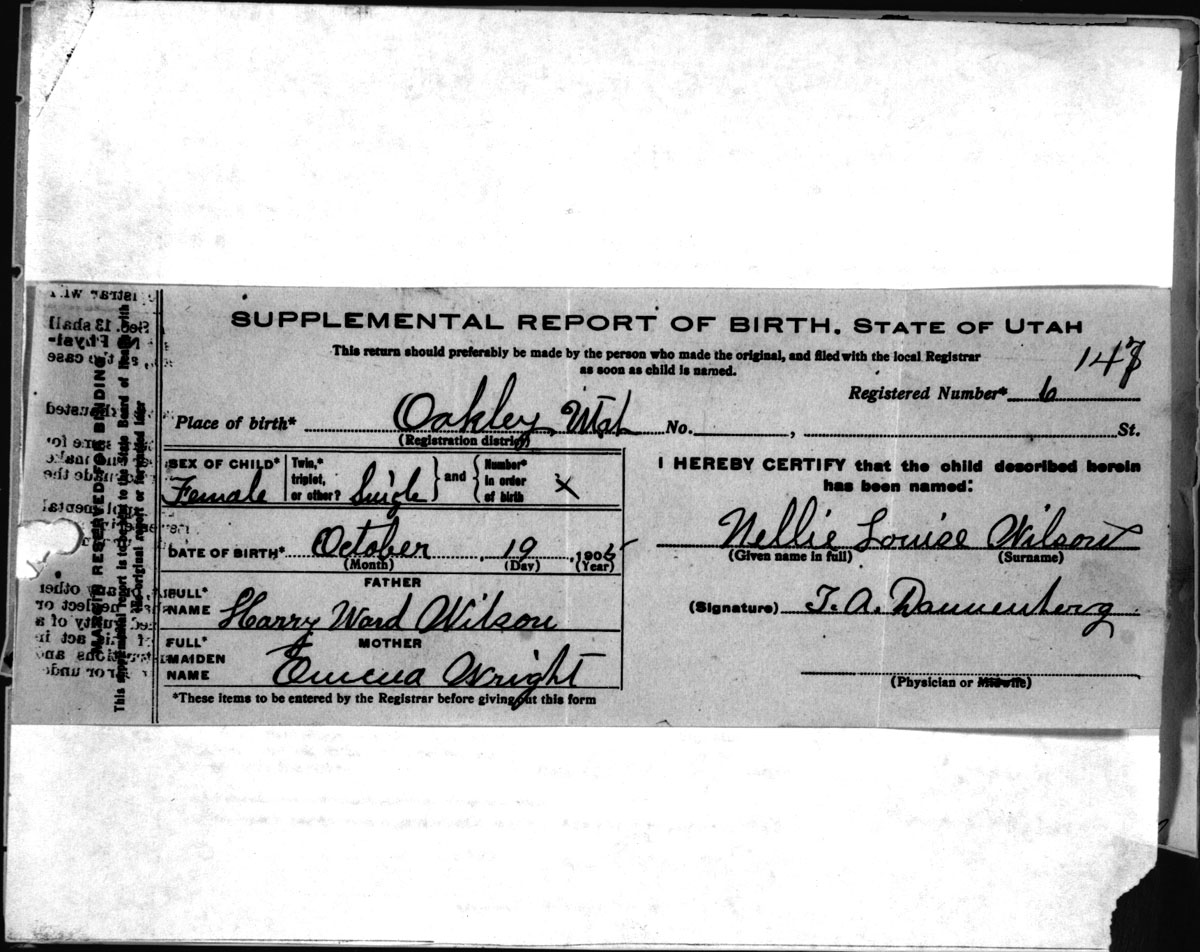 SUPPLEMENTAL REPORT OF BIRTH. STATE OF UTAH
This return should preferably be made by the person who made the original, and filed with the local Registrar
as soon as child is named.
147
Registered Number* 6
Place of birth* Oakley, Utah No. , St.
(Registration district)
SEX OF CHILD* Female
Twin,* triplet, or other? Single and Number* in order of birth X
DATE OF BIRTH* October 19, 1905
(Month) (Day) (Year)
FATHER
FULL* NAME Harry Ward Wilson
MOTHER
FULL* MAIDEN NAME Emena Wright
*These items to be entered by the Registrar before giving out this form
I HEREBY CERTIFY that the child described herein
has been named:
Nellie Louise Wilson
(Given name in full) (Surname)
(Signature) T. A. Dannenberg
(Physician or Midwife)
MARGIN RESERVED FOR BINDING.
This supplemental report is to be sent to the State Board of Health with
the original report or forwarded later